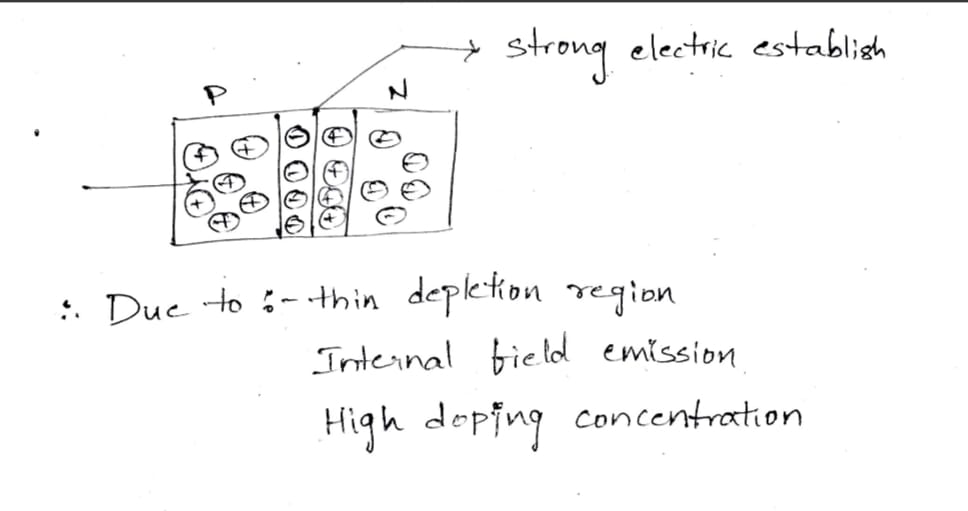 strong electric establish
P
N
∴ Due to :- thin depletion region
Internal field emission
High doping concentration